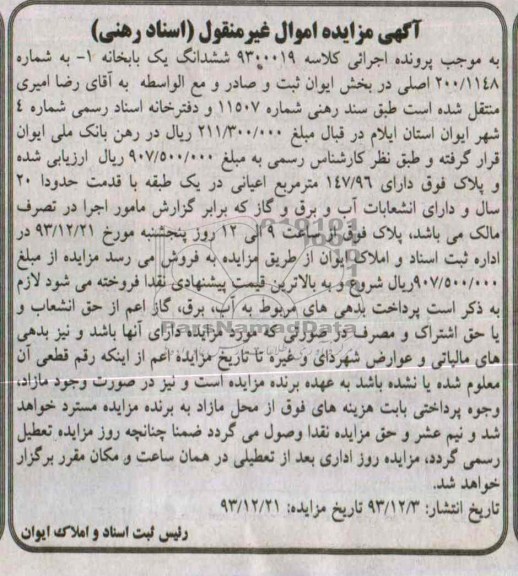 آگهی مزایده اموال غیرمنقول (اسناد رهنی)
به موجب پرونده اجرائی کلاسه ۹۳۰۰۰۱۹ ششدانگ یک بابخانه ۱- به شماره
۲۰۰/۱۱۴۸ اصلی در بخش ایوان ثبت و صادر و مع الواسطه به آقای رضا امیری
منتقل شده است طبق سند رهنی شماره ۱۱۵۰۷ و دفترخانه اسناد رسمی شماره ۴
شهر ایوان استان ایلام در قبال مبلغ ۲۱۱/۳۰۰/۰۰۰ ریال در رهن بانک ملی ایوان
قرار گرفته و طبق نظر کارشناس رسمی به مبلغ ۹۰۷/۵۰۰/۰۰۰ ریال ارزیابی شده
و پلاک فوق دارای ۱۴۷/۹۶ مترمربع اعیانی در یک طبقه با قدمت حدودا ۲۰
سال و دارای انشعابات آب و برق و گاز که برابر گزارش مامور اجرا در تصرف
مالک می باشد، پلاک فوق از ساعت ۹ الی ۱۲ روز پنجشنبه مورخ ۹۳/۱۲/۲۱ در
اداره ثبت اسناد و املاک ایوان از طریق مزایده به فروش می رسد مزایده از مبلغ
۹۰۷/۵۰۰/۰۰۰ریال شروع و به بالاترین قیمت پیشنهادی نقدا فروخته می شود لازم
به ذکر است پرداخت بدهی های مربوط به آب، برق، گاز اعم از حق انشعاب و
یا حق اشتراک و مصرف در صورتی که مورد مزایده دارای آنها باشد و نیز بدهی
های مالیاتی و عوارض شهرداری و غیره تا تاریخ مزایده اعم از اینکه رقم قطعی آن
معلوم شده یا نشده باشد به عهده برنده مزایده است و نیز در صورت وجود مازاد،
وجوه پرداختی بابت هزینه های فوق از محل مازاد به برنده مزایده مسترد خواهد
شد و نیم عشر و حق مزایده نقدا وصول می گردد ضمنا چنانچه روز مزایده تعطیل
رسمی گردد، مزایده روز اداری بعد از تعطیلی در همان ساعت و مکان مقرر برگزار
خواهد شد.
تاریخ انتشار: ۹۳/۱۲/۳ تاریخ مزایده: ۹۳/۱۲/۲۱
رئیس ثبت اسناد و املاک ایوان
ParsNamadData